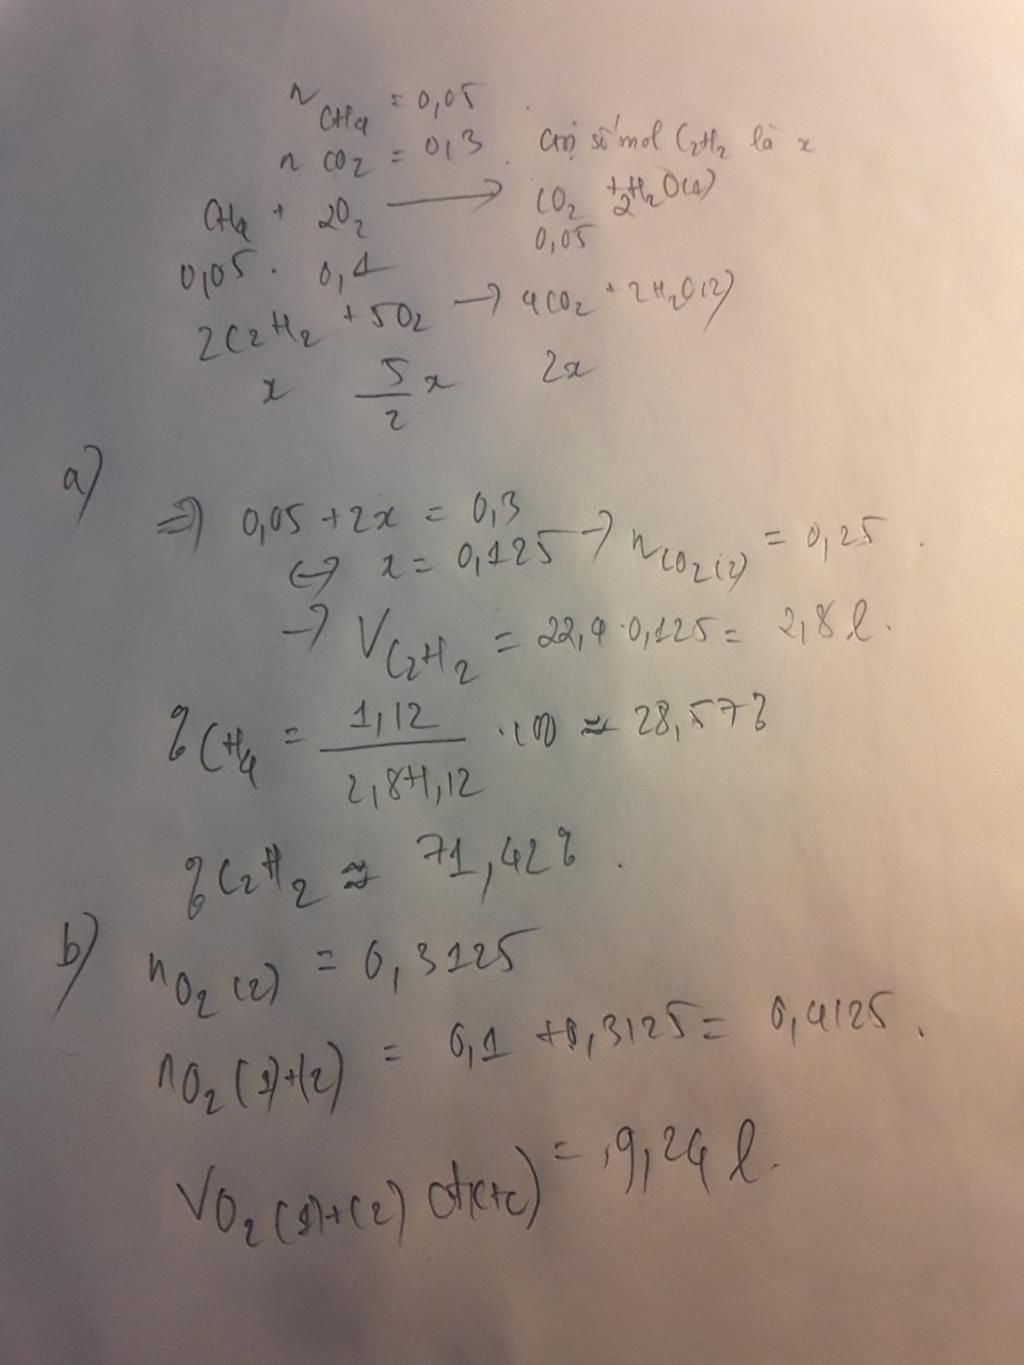 n CH4 = 0,05
n CO2 = 0,3 . Gọi số mol C2H2 là x
CH4 + 2O2 ⟶ CO2 + 2H2O(1)
0,05 . 0,1 0,05
2C2H2 + 5O2 → 4CO2 + 2H2O(2)
x 5/2 x 2x
a)
⇒ 0,05 + 2x = 0,3
↔ x = 0,125 → nCO2(2) = 0,25 .
→ VC2H2 = 22,4 . 0,125 = 2,8 l .
% CH4 = 1,12 / 2,8+1,12 . 100 ≈ 28,57%
% C2H2 ≈ 71,42% .
b) nO2 (2) = 0,3125
nO2 (1)+(2) = 0,1 + 0,3125 = 0,4125 .
VO2 (1)+(2) (đktc) = 9,24 l .